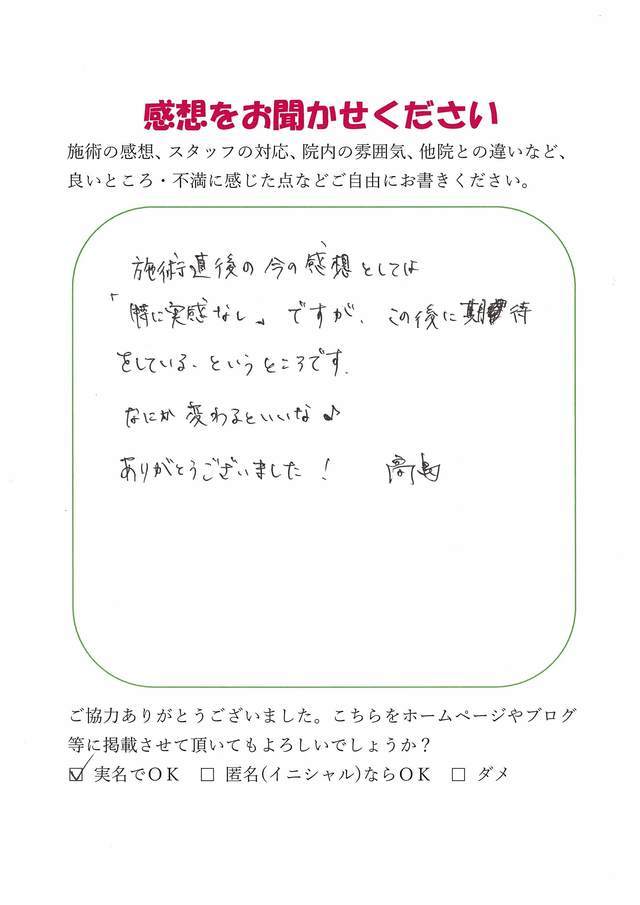 感想をお聞かせください
施術の感想、スタッフの対応、院内の雰囲気、他院との違いなど、
良いところ・不満に感じた点などご自由にお書きください。
施術直後の今の感想としては
「特に実感なし」ですが、この後に期待
をしている、というところです。
なにか変わるといいな♪
ありがとうございました！ 高島
ご協力ありがとうございました。こちらをホームページやブログ
等に掲載させて頂いてもよろしいでしょうか？
☑ 実名でＯＫ □ 匿名(イニシャル)ならＯＫ □ ダメ